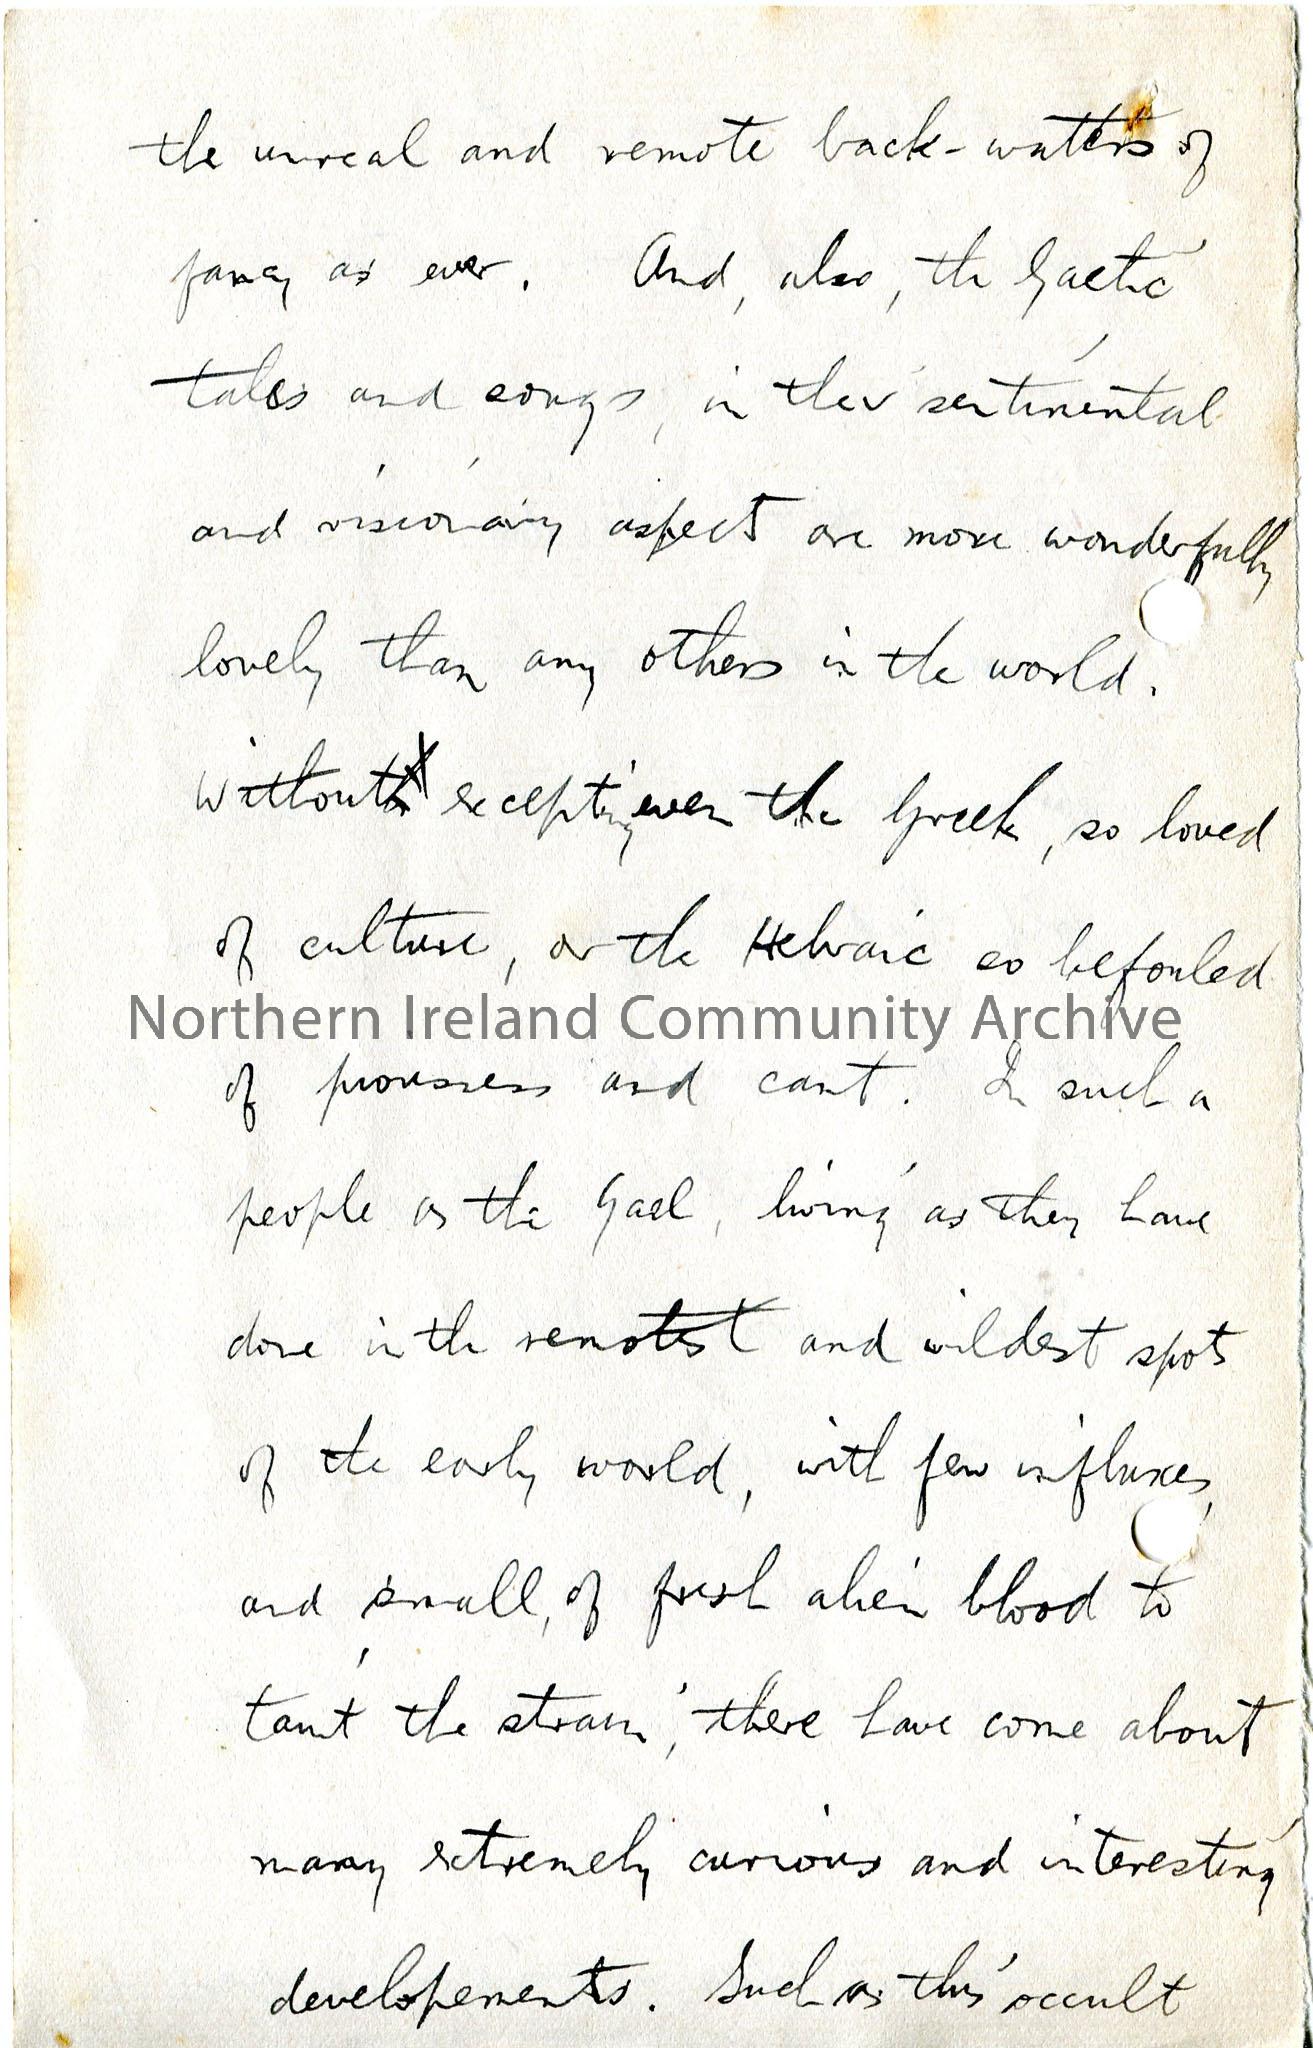 the unreal and remote back-waters of
fancy as ever. And, also, the Gaelic
tales and songs, in their sentimental
and visionary aspect are more wonderfully
lovely than any others in the world.
Without excepting even the Greek, so loved
of culture, or the Hebraic so befouled
Northern Ireland Community Archive
of piousness and cant. In such a
people as the Gael, living as they have
done in the remotest and wildest spots
of the early world, with few influxes,
and small, of fresh alien blood to
taint the strain, there have come about
many extremely curious and interesting
developements. Such as this occult